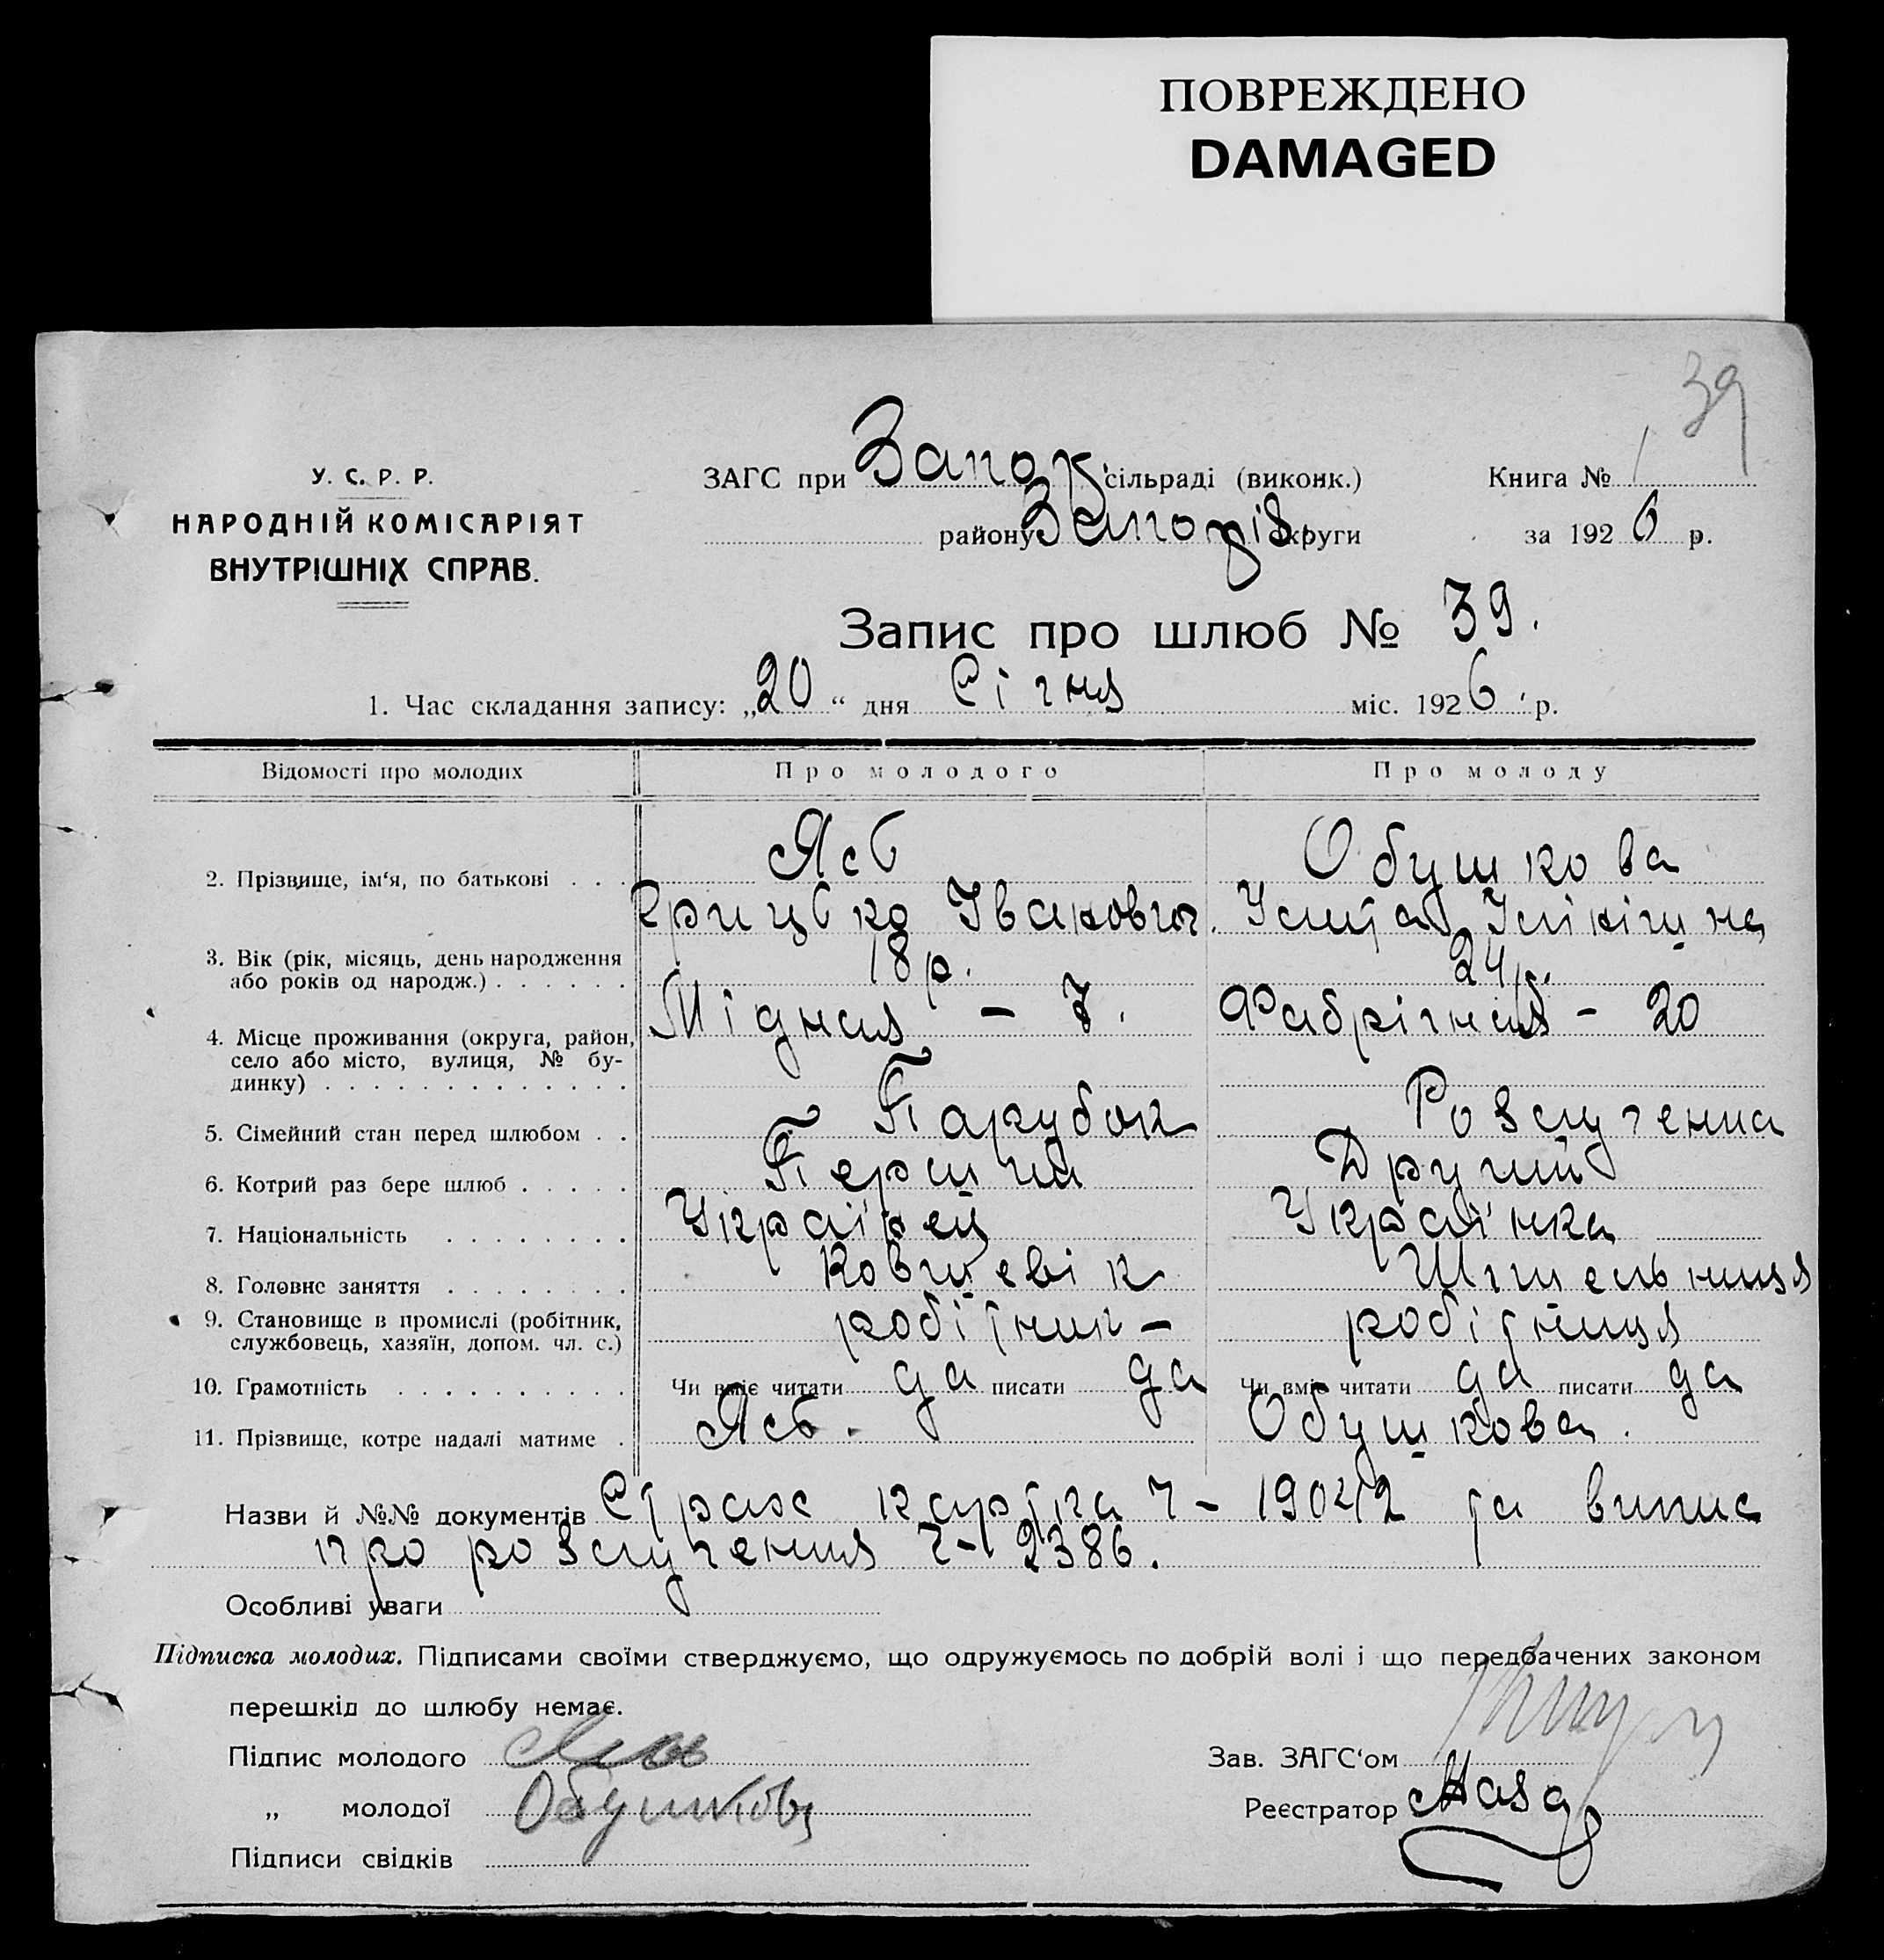 ПОВРЕЖДЕНО
DAMAGED
39
У. С. Р. Р.
НАРОДНІЙ КОМІСАРІЯТ
ВНУТРІШНІХ СПРАВ.
ЗАГС при Запор сільраді (виконк.)
району Запорів округи
Книга № 1
за 1926 р.
Запис про шлюб № 39.
1. Час складання запису: „20“ дня Січня міс. 1926 р.
Відомості про молодих Про молодого Про молоду
2. Прізвище, ім‘я, по батькові . . . Ясь Обушкова
Грицько Іванович.
3. Вік (рік, місяць, день народження або років од народж.) . . . . . . 18 р. 24 р.
4. Місце проживання (округа, район, село або місто, вулиця, № будинку) . . . . . . . . . . . . . . Мідная - 7. Фабрічная - 20
5. Сімейний стан перед шлюбом . . Парубок Розлучена
6. Котрий раз бере шлюб . . . . . Перший Другий
7. Національність . . . . . . . . Українец Українка
8. Головне заняття . . . . . . . .
9. Становище в промислі (робітник, службовець, хазяїн, допом. чл. с.) робітник - робітниця
10. Грамотність . . . . . . . . . . Чи вміє читати да писати да Чи вміє читати да писати да
11. Прізвище, котре надалі матиме . Ясь. Обушкова.
Назви й №№ документів Страх картка ч- та випис
про розлучення ч- 2386.
Особливі уваги
Підписка молодих. Підписами своїми стверджуємо, що одружуємось по добрій волі і що передбачених законом
перешкід до шлюбу немає.
Підпис молодого Ясь
„ молодої Обушкова
Підписи свідків
Зав. ЗАГС‘ом
Реєстратор